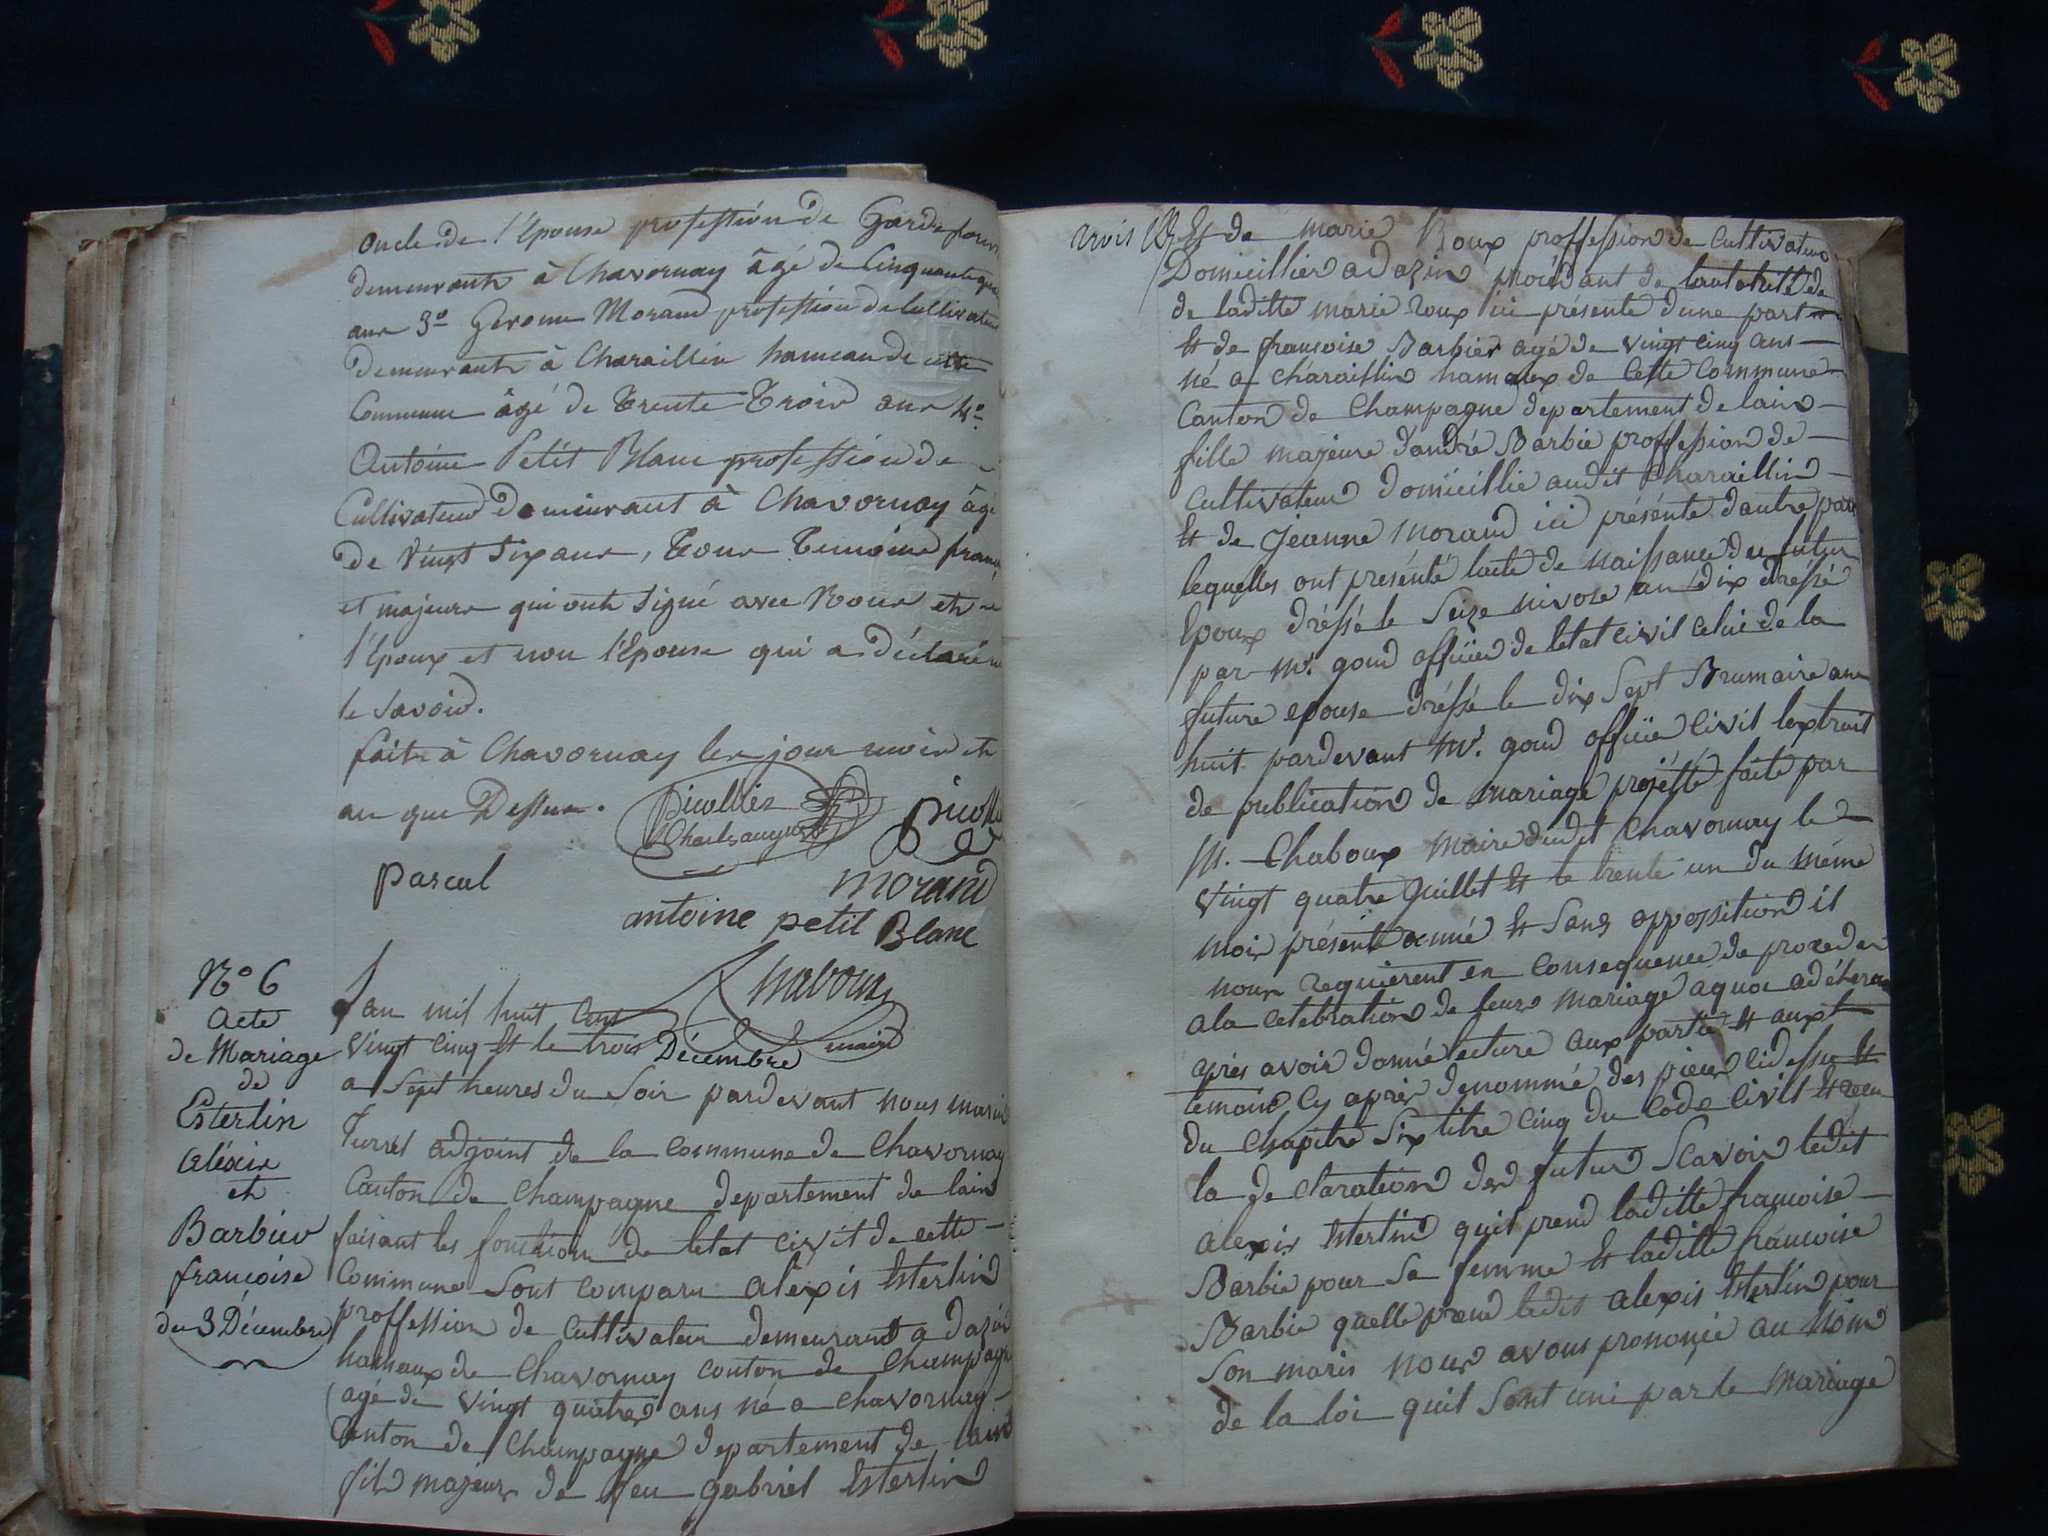 oncle de l'Epouse profession de Garde
demeurant à Chavornay âgé de Cinquante
ans 3o Gerome Morand profession de Cultivateur
demeurant à Charaillin hameau de cette
Commune âgé de Trente Trois ans 4o
Antoine Petit Blanc profession de
Cultivateur Demeurant à Chavornay âgé
de Vingt Six ans, Tous Temoins
et majeurs qui ont Signé avec Nous et
l'Epoux et non l'Epouse qui a Déclaré ne
le Savoir.
fait à Chavornay les jour mois et
an que Dessus. Picollier
Charles auguste
Pascal Morand
antoine petit Blanc
Chaboux
maire
No 6
acte
de Mariage
de
Esterlin
aléxis
et
Barbier
francoise
du 3 Décembre
Lan mil huit Cent
Vingt cinq Et le trois Décembre
a Sept heures du Soir pardevant nous
adjoint de la Commune de Chavornay
Canton de Champagne departement de lain
faisant les fonction de letat civil de cette
Commune Sont comparu alexis Esterlin
proffession de Cultivateur demeurant a dazin
hameaux de Chavornay conton de Champagne
agé de vingt quatre ans né a Chavornay
Conton de Champagne departement de lain
fils majeur de feu gabriel Esterlin
Et de marie Roux proffession de Cultivateur
Domicillier a dazin procédant de
de laditte marie roux ici présente dune part
Et de francoise Barbier agé de vingt cinq ans
né a charaillin hamaux de Cette Commune
Canton de Champagne departement de lain
fille majeure d'andré Barbie proffession de
Cultivateur domicillie audit Charaillin
Et de Jeanne Morand ici présente dautre part
lequelles ont présenté lacte de naissance du futur
Epoux dréssé le Seize nivose an dix dréssé
par mr. goud officier de letat civil celui de la
future epouse dréssé le dix Sept Brumaire an
huit pardevant Mr. goud officié Civil lextrait
de publication de mariage projétté faite par
M. Chaboux Maire dudit Chavornay le
vingt quatre Juillet Et le trente un du méme
mois présente année Et Sans opposition il
nous requierent en Consequence de proceder
a la celebration de leurs Mariage aquoi
aprés avoir donné lecture aux partie Et aux
temoins Cy aprés denommé des piece cidessus Et
du chapitre Six titre Cinq du Code Civil
la de claration des futur Scavoir ledit
alexis Esterlin quil prend laditte francoise
Barbie pour Sa femme Et laditte francoise
Barbie quelle prend ledit alexis Esterlin pour
Son maris nous avons prononcé au Nom
de la loi quil Sont uni par le Mariage